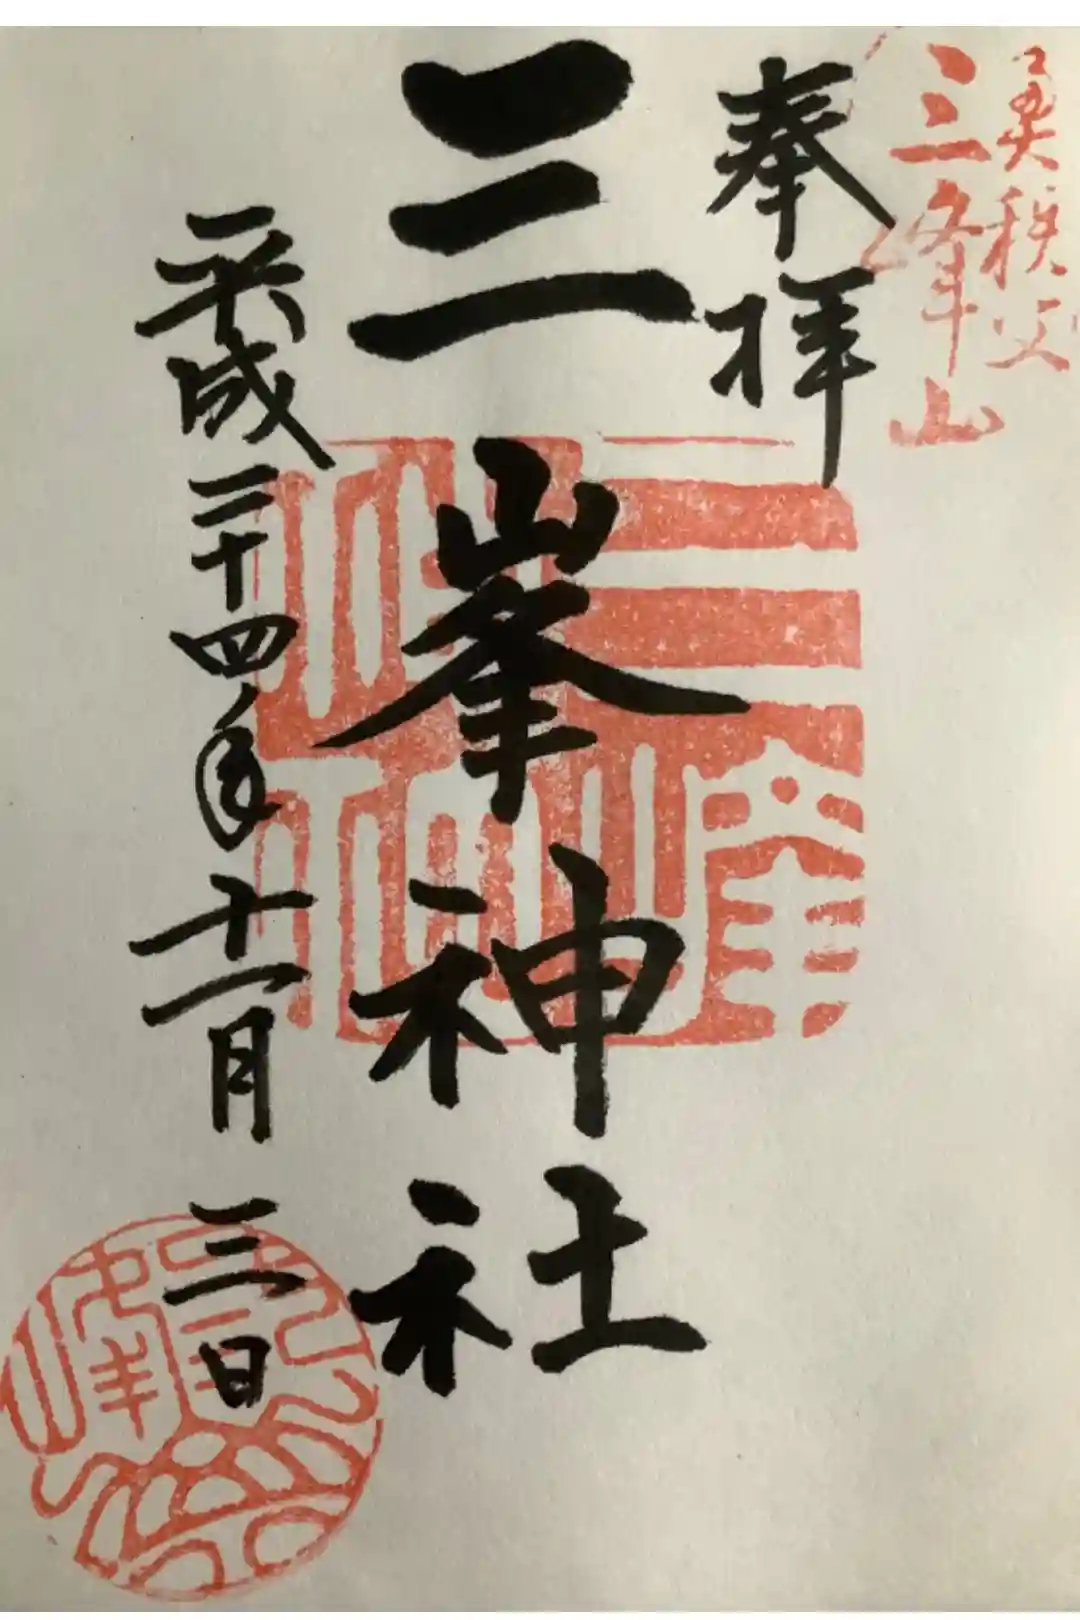 奥秩父
三峰山
奉拝
三峯神社
平成二十四年十一月三日